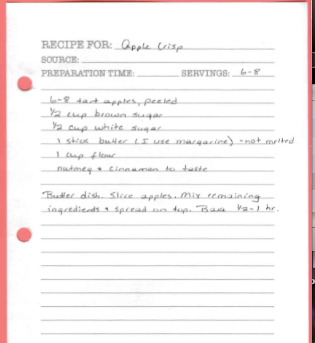 RECIPE FOR: Apple Crisp
SOURCE:
PREPARATION TIME: SERVINGS: 6-8
6-8 tart apples, peeled
1/2 cup brown sugar
1/2 cup white sugar
1 stick butter (I use margarine) - not melted
1 cup flour
nutmeg & cinnamon to taste
Butter dish. Slice apples. Mix remaining
ingredients & spread on top. Bake 1/2-1 hr.